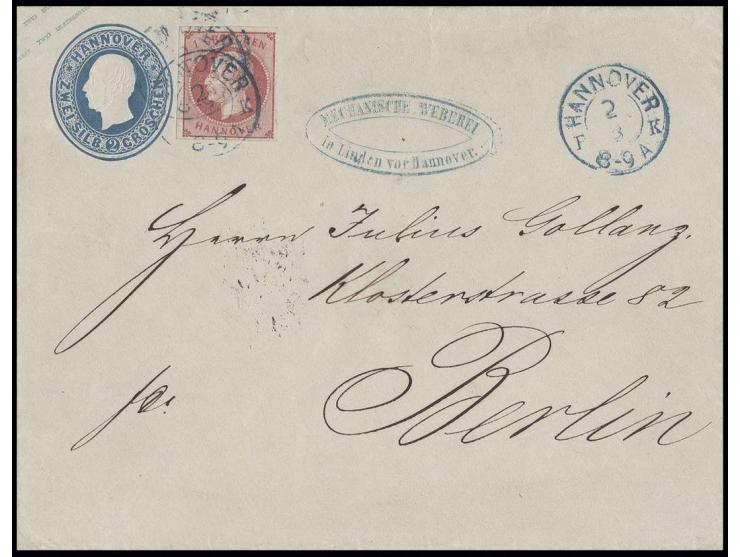 HANNOVER
ZWEI SILB. 2 GROSCHEN
GROSCHEN
HANNOVER
HANNOVER
2
K
8-9
MECHANISCHE WEBEREI
in Linden vor Hannover.
HANNOVER
2
3
F K
8-9 A
Herrn Julius Gollanz.
Klosterstrasse 82
fco.
Berlin